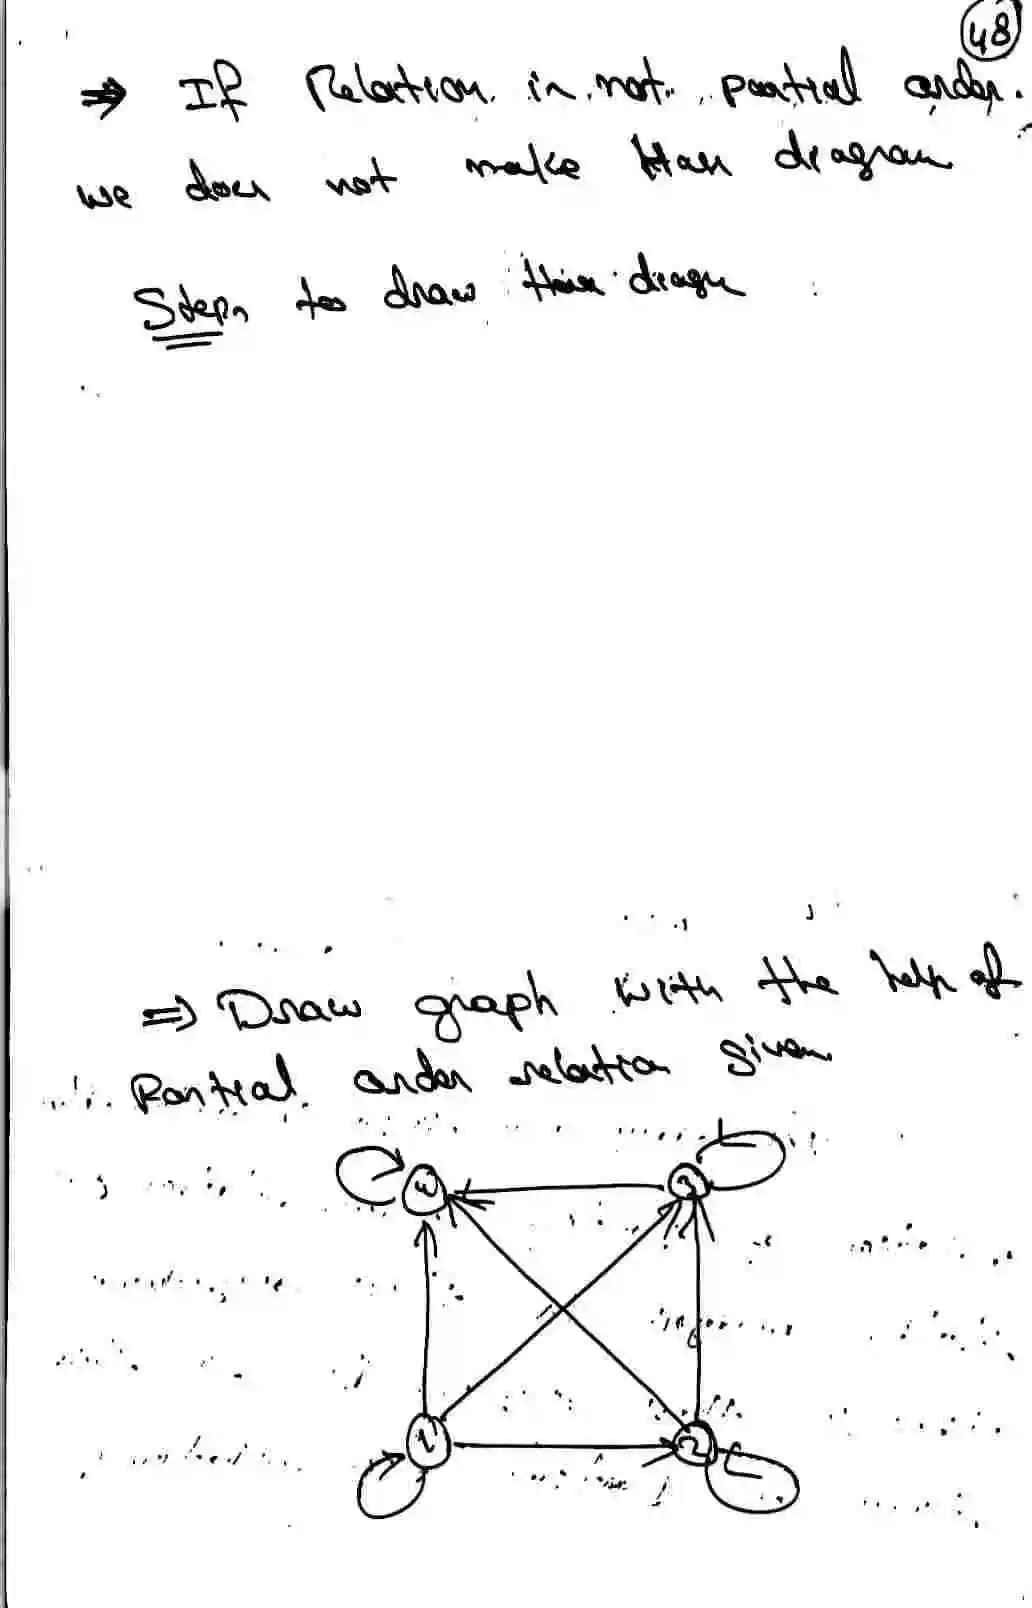 48
⇒ If Relation is not partial order.
we does not make Hass diagram
Steps to draw Hass diagra
⇒ Draw graph with the help of
Partial order relation given
4 3
1 2